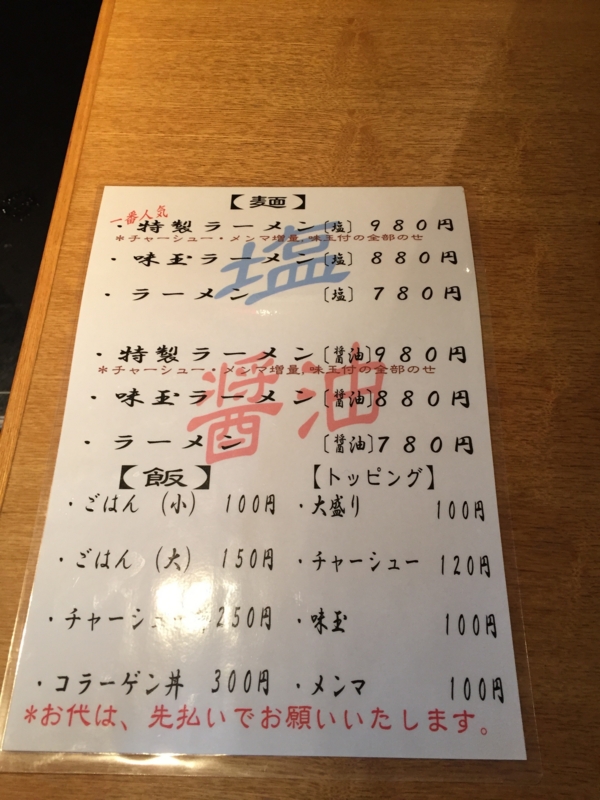 【麦面】
一番人気
・特製ラーメン〔塩〕９８０円
＊チャーシュー・メンマ増量,味玉付の全部のせ
塩
・味玉ラーメン〔塩〕８８０円
・ラーメン〔塩〕７８０円
・特製ラーメン〔醤油〕９８０円
＊チャーシュー・メンマ増量,味玉付の全部のせ
醤油
・味玉ラーメン〔醤油〕８８０円
・ラーメン〔醤油〕７８０円
【飯】
・ごはん（小）100円
・ごはん（大）150円
・チャーシュー 250円
・コラーゲン丼 300円
【トッピング】
・大盛り 100円
・チャーシュー 120円
・味玉 100円
・メンマ 100円
＊お代は、先払いでお願いいたします。